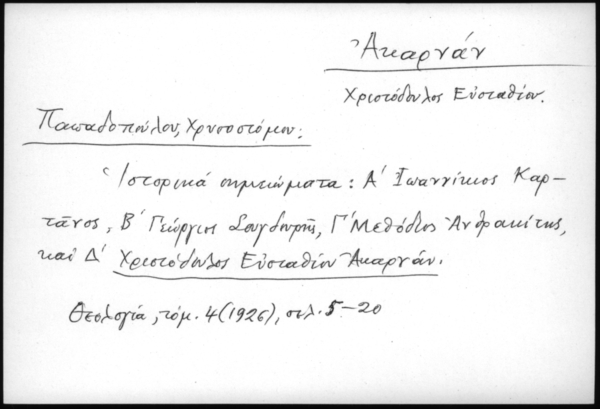 Ἀκαρνάν
Χριστόδουλος Εὐσταθίου.
Παπαδοπούλου, Χρυσοστόμου:
Ἱστορικά σημειώματα: Α΄ Ἰωαννίκιος Καρ-
τᾶνος, Β΄ Γεώργιος Σουγδουρῆς, Γ΄ Μεθόδιος Ἀνθρακίτης,
καί Δ΄ Χριστόδουλος Εὐσταθίου Ἀκαρνάν.
Θεολογία, τόμ. 4 (1926), σελ. 5-20